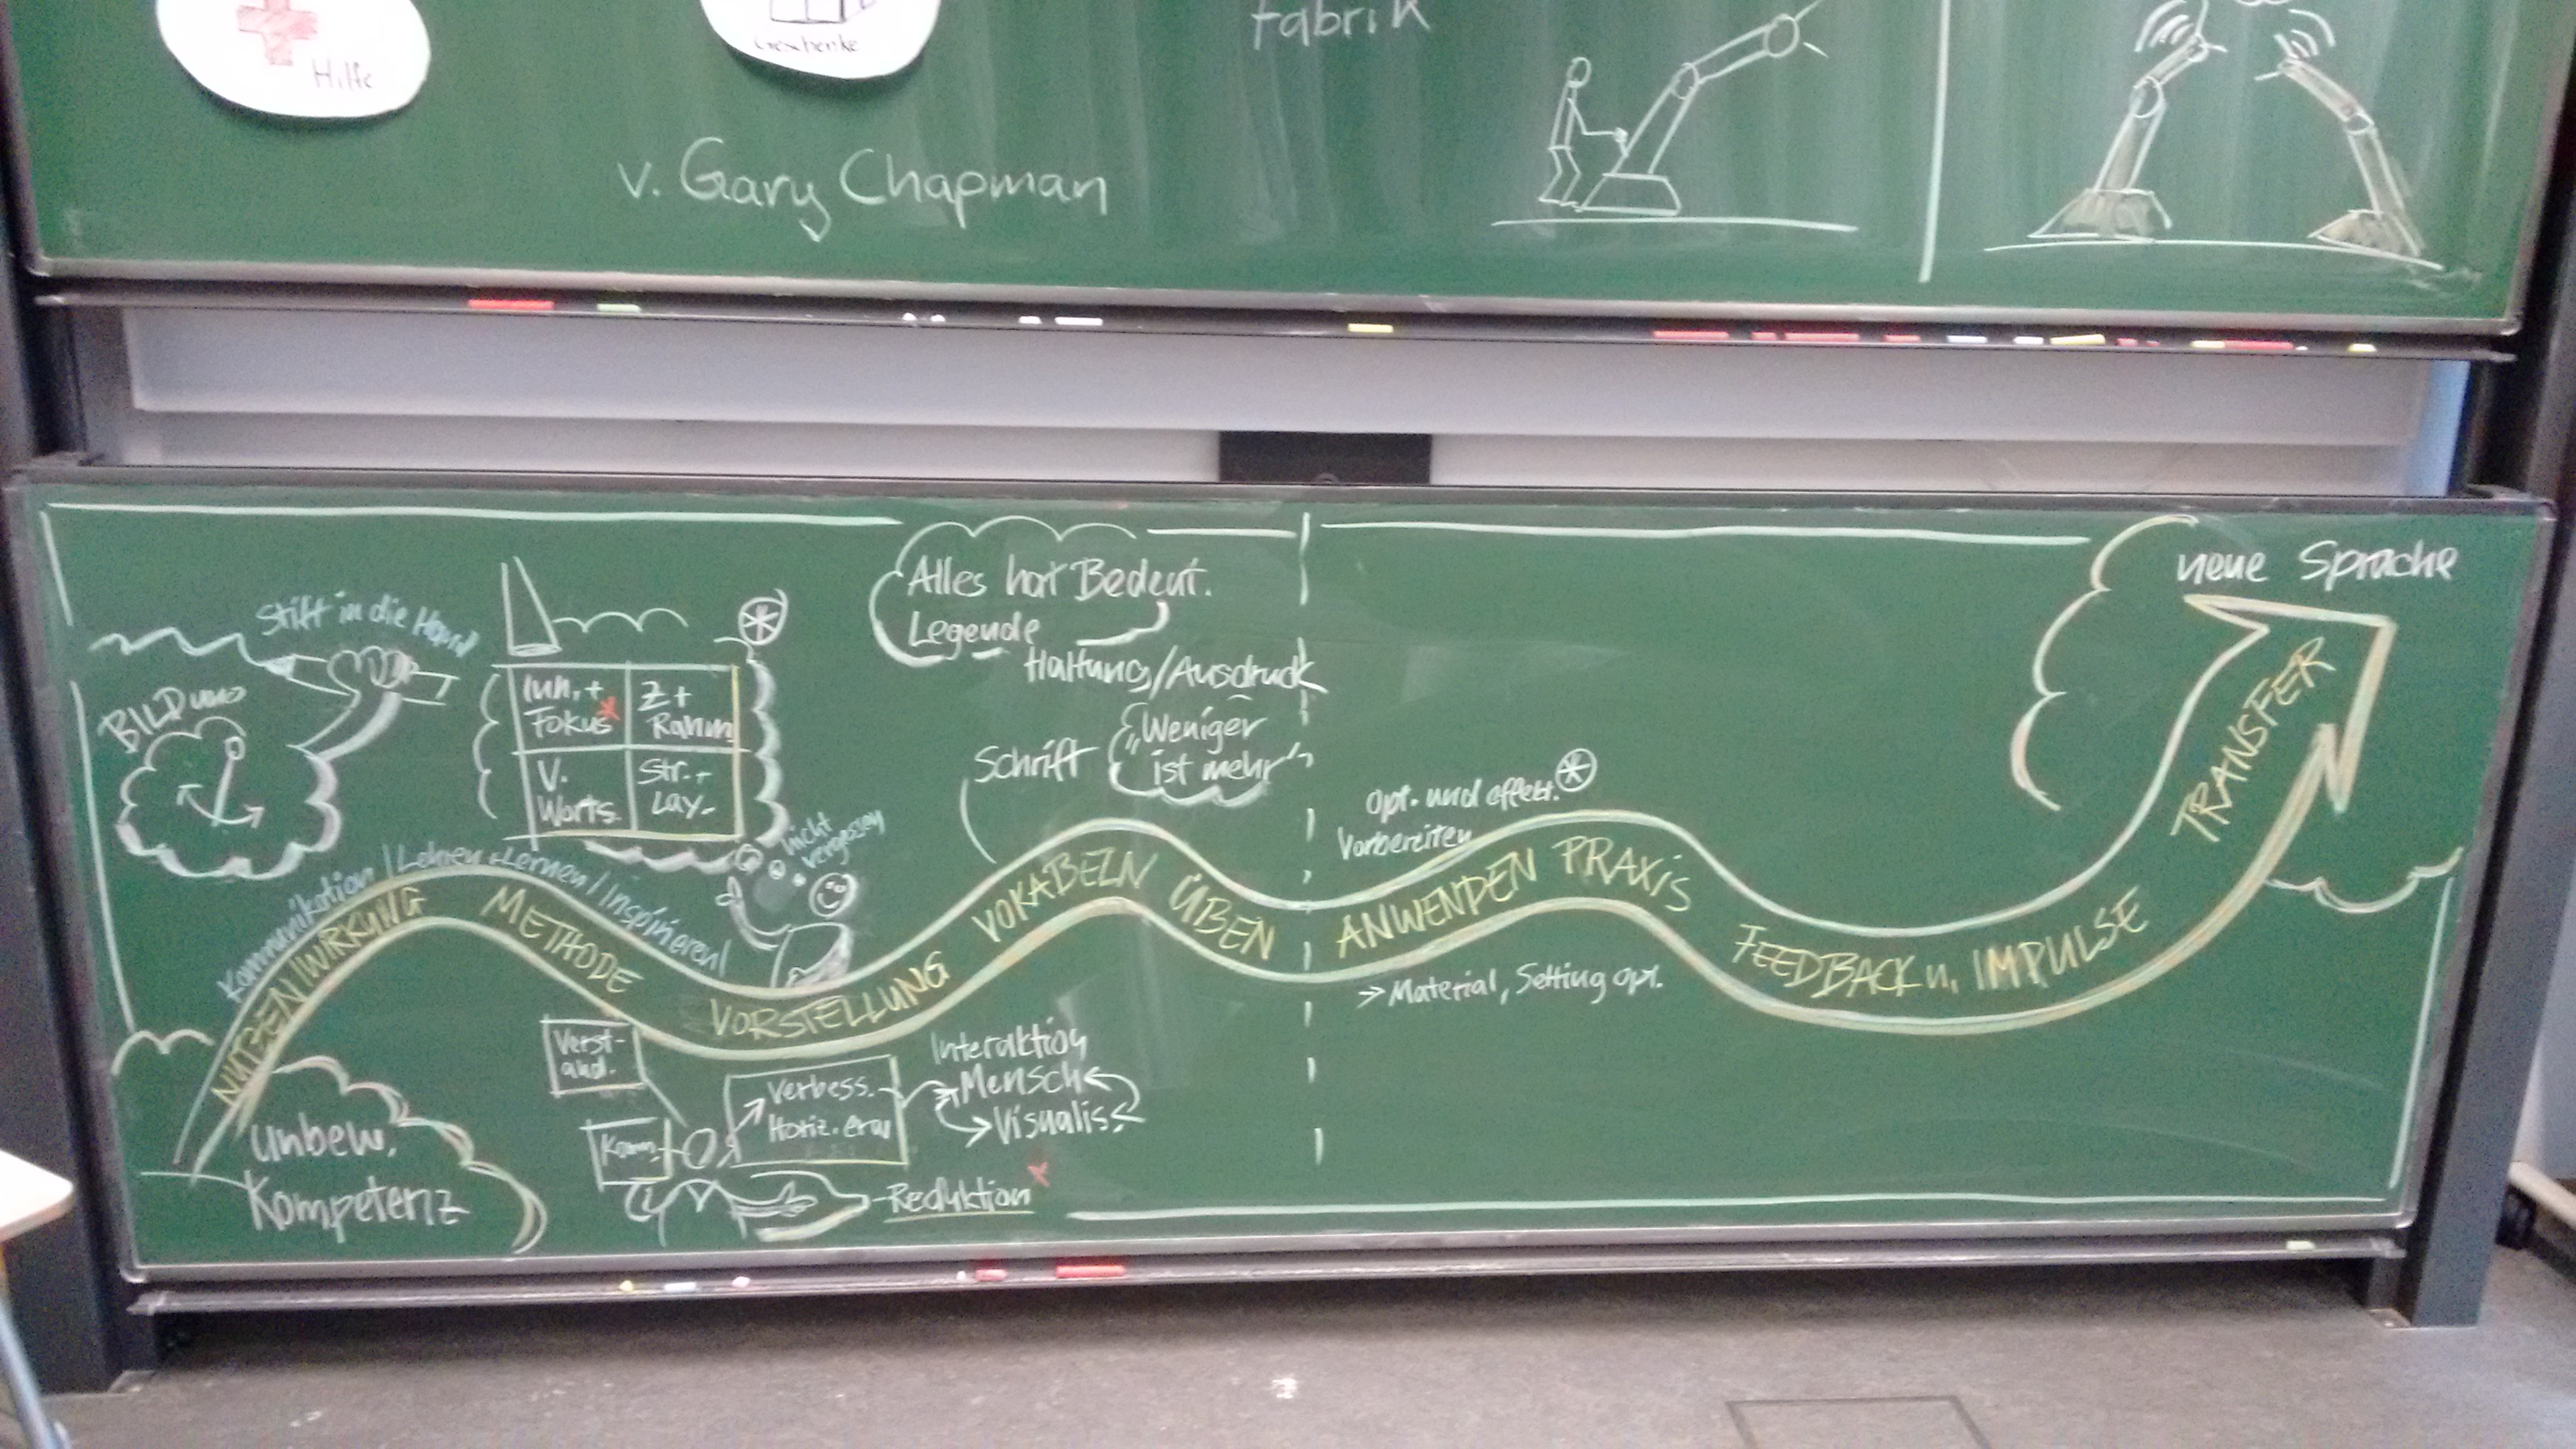 Hilfe
Geschenke
Fabrik
v. Gary Chapman
Stift in die Hand
BILDUNG
Inh. +
Fokus
Z +
Rahm
V.
Worts.
Str. +
Lay.
nicht
vergessen
Alles hat Bedeut.
Legende
Haltung/Ausdruck
"Weniger
ist mehr"
Schrift
Opt. und effekt.
Vorbereiten
neue Sprache
Kommunikation / Lehren + Lernen / Inspirieren /
NUTZEN/WIRKUNG
METHODE
VORSTELLUNG
VOKABELN ÜBEN
ANWENDEN PRAXIS
FEEDBACK u. IMPULSE
TRANSFER
→ Material, Setting opt.
Unbew.
Kompetenz
Verst-
änd.
Komm.
Verbess.
Horiz. erw
Interaktion
Mensch
Visualis.
- Reduktion